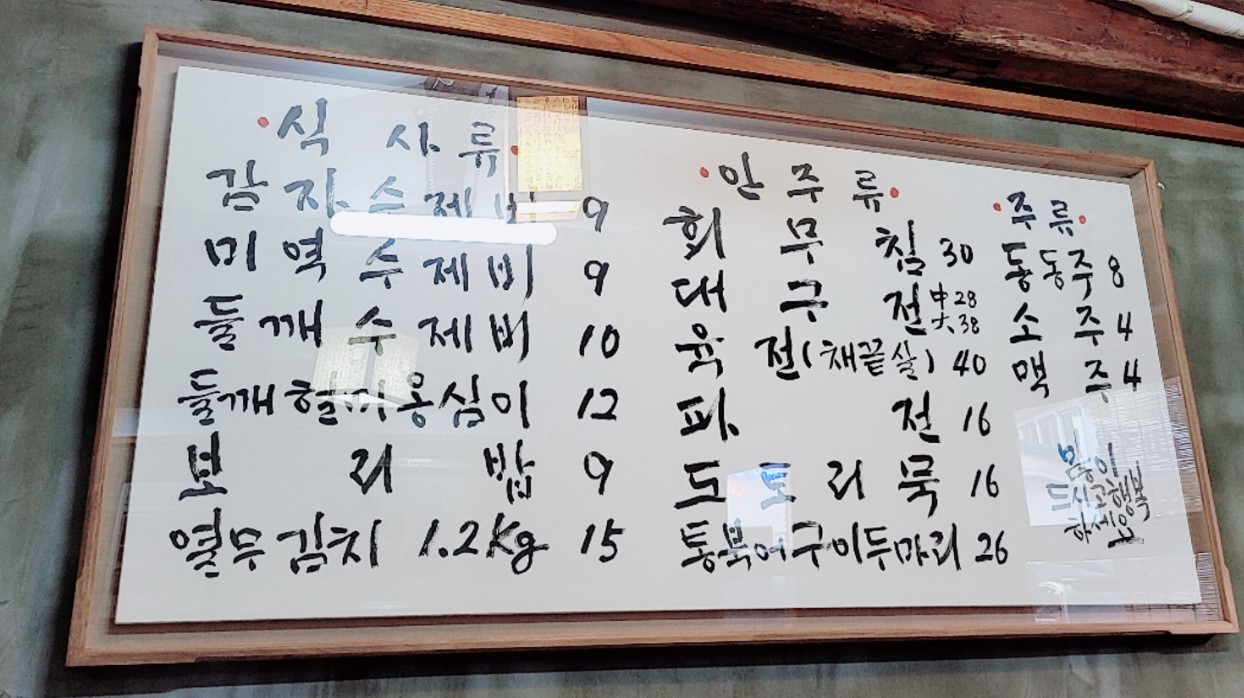 식 사 류
감 자 수 제 비 9
미 역 수 제 비 9
들 깨 수 제 비 10
들깨 헐끼옹심이 12
보 리 밥 9
열무김치 1.2kg 15
안 주 류
회 무 침 30
대 구 전 中 28
大 38
육 전(채끝살) 40
파 전 16
도 토 리 묵 16
통북어구이두마리 26
주 류
동동주 8
소 주 4
맥 주 4
많이
드시고행복
하세요